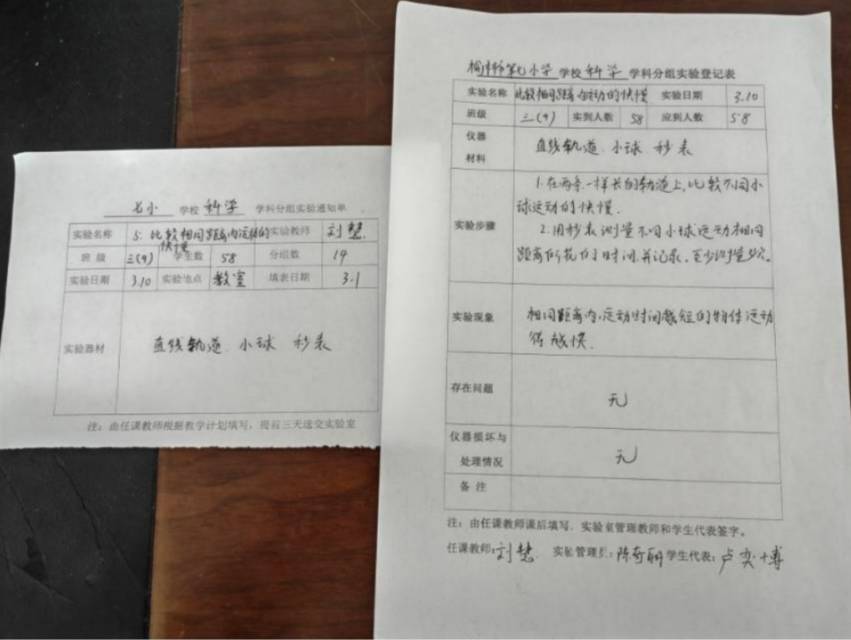 七小 学校 科学 学科分组实验通知单
实验名称 5. 比较相同距离内运动的快慢 实验教师 刘慧
班 级 三(9) 学生数 58 分组数 19
实验日期 3.10 实验地点 教室 填表日期 3.1
实验器材 直线轨道 小球 秒表
注：由任课教师根据教学计划填写，提前三天送交实验室
小学 学校 科学 学科分组实验登记表
实验名称 比较相同距离内运动的快慢 实验日期 3.10
班级 三(9) 实到人数 58 应到人数 58
仪器
材料 直线轨道 小球 秒表
实验步骤
1.在两条一样长的轨道上,比较不同小
球运动的快慢.
2.用秒表测量不同小球运动相同
距离所花的时间,并记录,至少测量
实验现象
相同距离内,运动时间越短的物体运动
得越快.
存在问题 无
仪器损坏与
处理情况 无
备 注
注：由任课教师课后填写，实验室管理教师和学生代表签字。
任课教师：刘慧 实验管理员：陈奇丽 学生代表：卢奕博